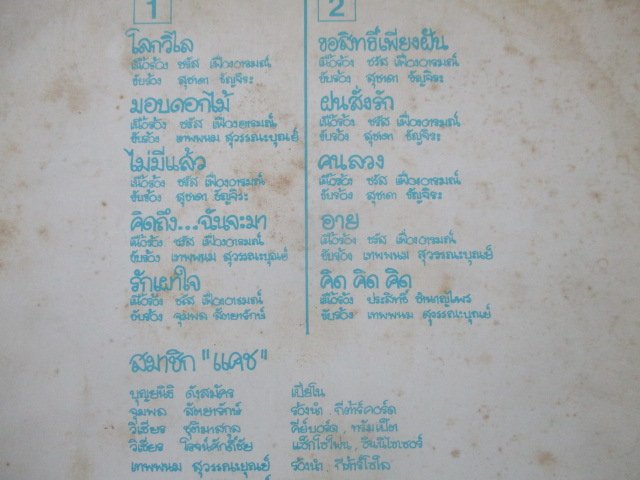 1
โลกวิไล
เนื้อร้อง จรัส เฟื่องอารมณ์
ขับร้อง สุชาดา ธัญจิระ
มอบดอกไม้
เนื้อร้อง จรัส เฟื่องอารมณ์
ขับร้อง เทพพนม สุวรรณะบุณย์
ไม่มีแล้ว
เนื้อร้อง จรัส เฟื่องอารมณ์
ขับร้อง สุชาดา ธัญจิระ
คิดถึง...ฉันจะมา
เนื้อร้อง จรัส เฟื่องอารมณ์
ขับร้อง เทพพนม สุวรรณะบุณย์
รักเผาใจ
เนื้อร้อง จรัส เฟื่องอารมณ์
ขับร้อง จุมพล สัทยารักษ์
2
ขอสิทธิ์เพียงฝัน
เนื้อร้อง จรัส เฟื่องอารมณ์
ขับร้อง สุชาดา ธัญจิระ
ฝนสั่งรัก
เนื้อร้อง จรัส เฟื่องอารมณ์
ขับร้อง สุชาดา ธัญจิระ
คนลวง
เนื้อร้อง จรัส เฟื่องอารมณ์
ขับร้อง สุชาดา ธัญจิระ
อาย
เนื้อร้อง จรัส เฟื่องอารมณ์
ขับร้อง เทพพนม สุวรรณะบุณย์
คิด คิด คิด
เนื้อร้อง ประสิทธิ์ ชำนาญไพร
ขับร้อง เทพพนม สุวรรณะบุณย์
สมาชิก "แคช"
บุญยนิธิ ดังสมัคร เปียโน
จุมพล สัทยารักษ์ ร้องนำ กีต้าร์คอร์ด
วิเชียร ชุติมาสกุล คีย์บอร์ด, ทรัมเป็ต
วิเชียร โรจน์ศักดิ์ชัย แซ็กโซโฟน, ซินธิไซเซอร์
เทพพนม สุวรรณะบุณย์ ร้องนำ กีต้าร์โซโล